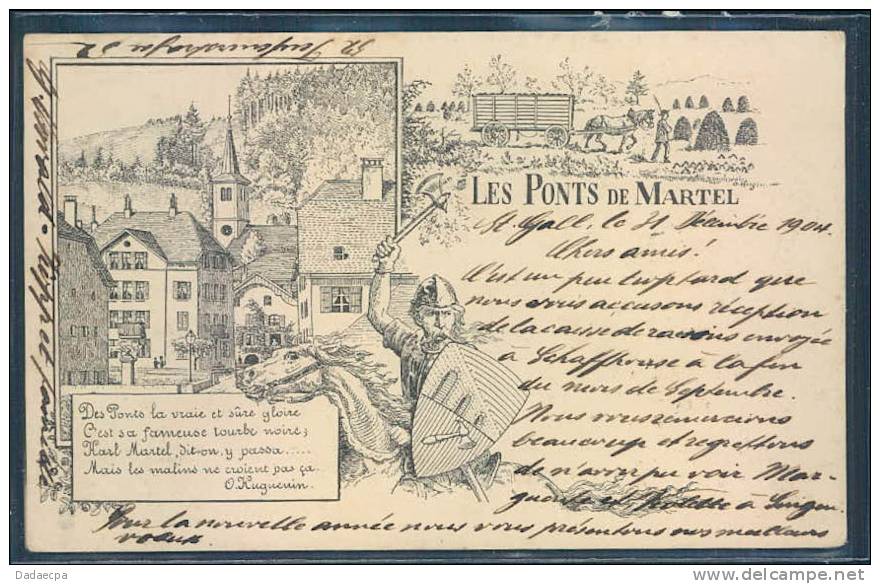 LES PONTS DE MARTEL
St. Gall, le 31 Décembre 1904.
Chers amis!
C'est un peu trop tard que
nous vous accusons réception
de la caisse de racines envoyée
à Schaffhouse à la fin
du mois de Septembre.
Nous vous remercions
beaucoup et regrettons
de n'avoir pu voir Mar-
guerite et à Singen.
Pour la nouvelle année nous vous présentons nos meilleurs
voeux
et famille
52
Des Ponts la vraie et sûre gloire
C'est sa fameuse tourbe noire;
Karl Martel, dit-on, y passa.....
Mais les malins ne croient pas ça..
O. Huguenin.
Dadaecpa
www.delcampe.net